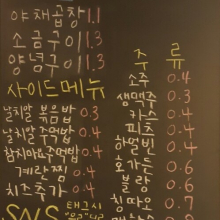 야채곱창 1.1
소금구이 1.3
양념구이 1.3
사이드메뉴
날치알 볶음밥 0.3
날치알 주먹밥 0.4
참치마요주먹밥 0.4
계란찜 0.4
치즈추가 0.4
SNS 태그시
주 류
소주 0.4
생맥주 0.3
카스 0.4
피츠 0.4
하얼빈 0.4
호가든 0.6
블랑 0.6
칭따오 0.7